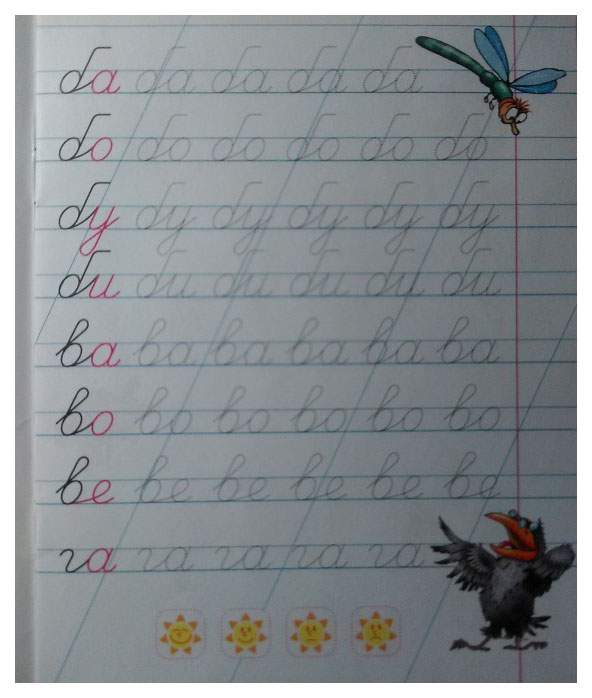 ба ба ба ба ба
бо бо бо бо бо бо
бу бу бу бу бу бу
би би би би би би
ва ва ва ва ва ва
во во во во во во
ве ве ве ве ве ве
га га га га га